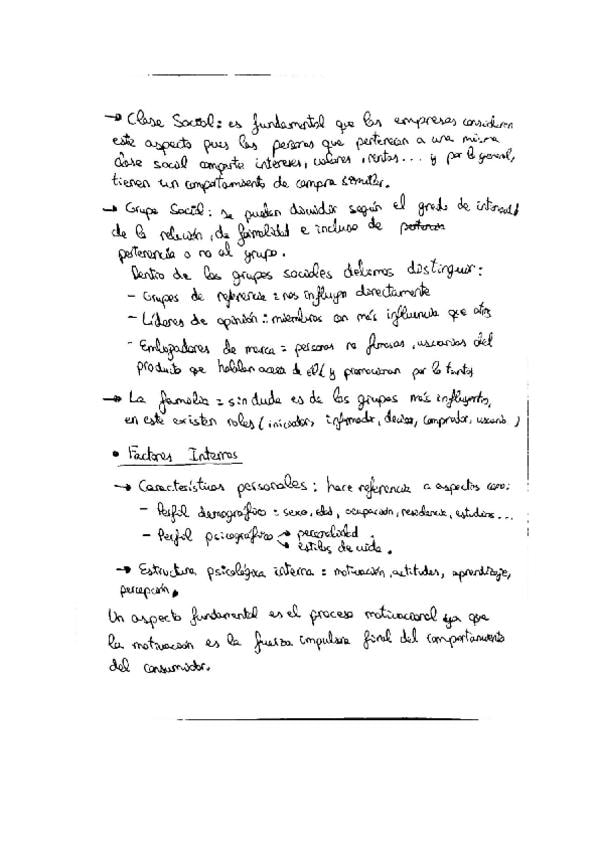 → Clase Social: es fundamental que las empresas consideren
este aspecto pues las personas que pertenecen a una misma
clase social comparte intereses, valores, rentas... y por lo general,
tienen un comportamiento de compra similar.
→ Grupo Social: se pueden dividir según el grado de intensidad
de la relación, de formalidad e incluso de
pertenencia o no al grupo.
Dentro de los grupos sociales debemos distinguir:
- Grupos de referencia: nos influyen directamente
- Líderes de opinión: miembros con más influencia que otros
- Embajadores de marca = personas no famosas, usuarias del
producto que hablan acerca de él y promocionan por lo tanto
→ La familia = sin duda es de los grupos más influyentes,
en este existen roles (iniciador, informador, decisor, comprador, usuario)
• Factores Internos
→ Características personales: hace referencia a aspectos como:
- Perfil demográfico = sexo, edad, ocupación, residencia, estudios...
- Perfil psicográfico → personalidad
→ estilos de vida.
→ Estructura psicológica interna = motivación, actitudes, aprendizaje,
percepción.
Un aspecto fundamental es el proceso motivacional ya que
la motivación es la fuerza impulsora final del comportamiento
del consumidor.